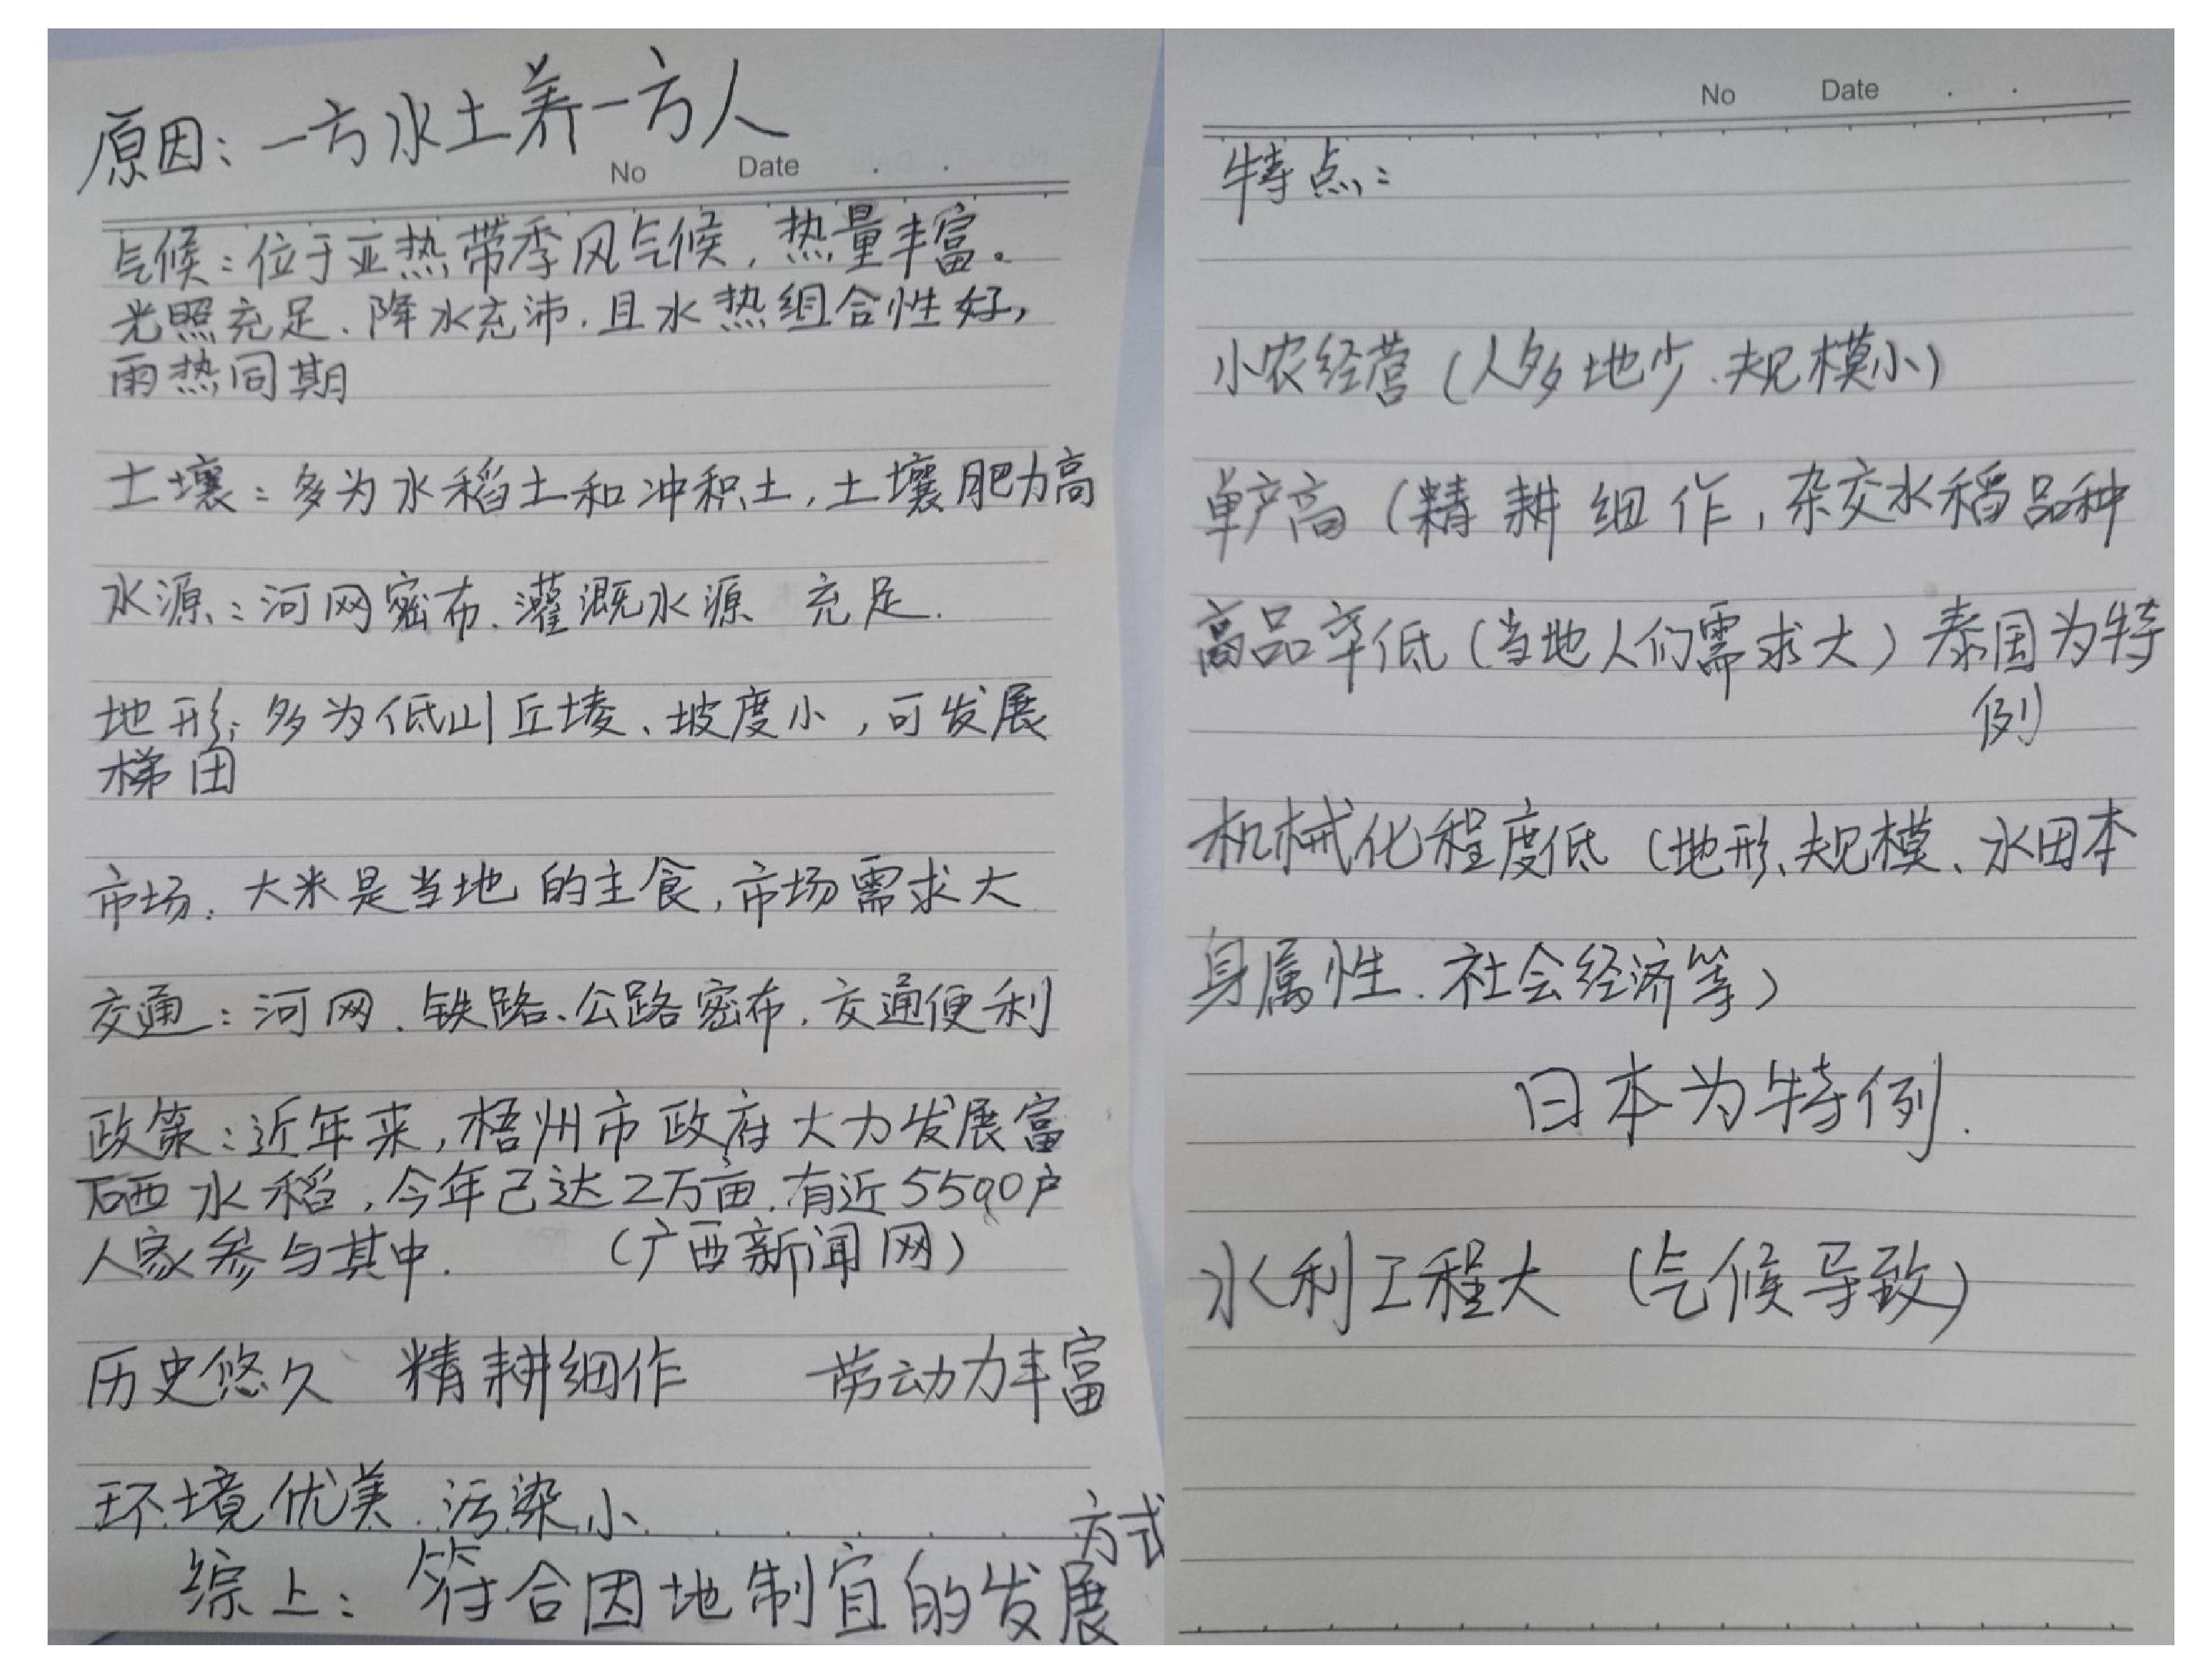 原因：一方水土养一方人
No Date
气候：位于亚热带季风气候，热量丰富。
光照充足、降水充沛，且水热组合性好，
雨热同期
土壤：多为水稻土和冲积土，土壤肥力高
水源：河网密布，灌溉水源 充足.
地形：多为低山丘堎、坡度小，可发展
梯田
市场：大米是当地的主食，市场需求大
交通：河网、铁路、公路密布，交通便利
政策：近年来，梧州市政府大力发展富
硒水稻，今年已达2万亩，有近5500户
人家参与其中.（广西新闻网）
历史悠久 精耕细作 劳动力丰富
环境优美 污染小
综上：符合因地制宜的发展
方式
No Date
特点：
小农经营（人多地少、规模小）
单产高（精耕细作，杂交水稻品种
商品率低（当地人们需求大）泰国为特
例
机械化程度低（地形、规模、水田本
身属性、社会经济等）
日本为特例.
水利工程大（气候导致）